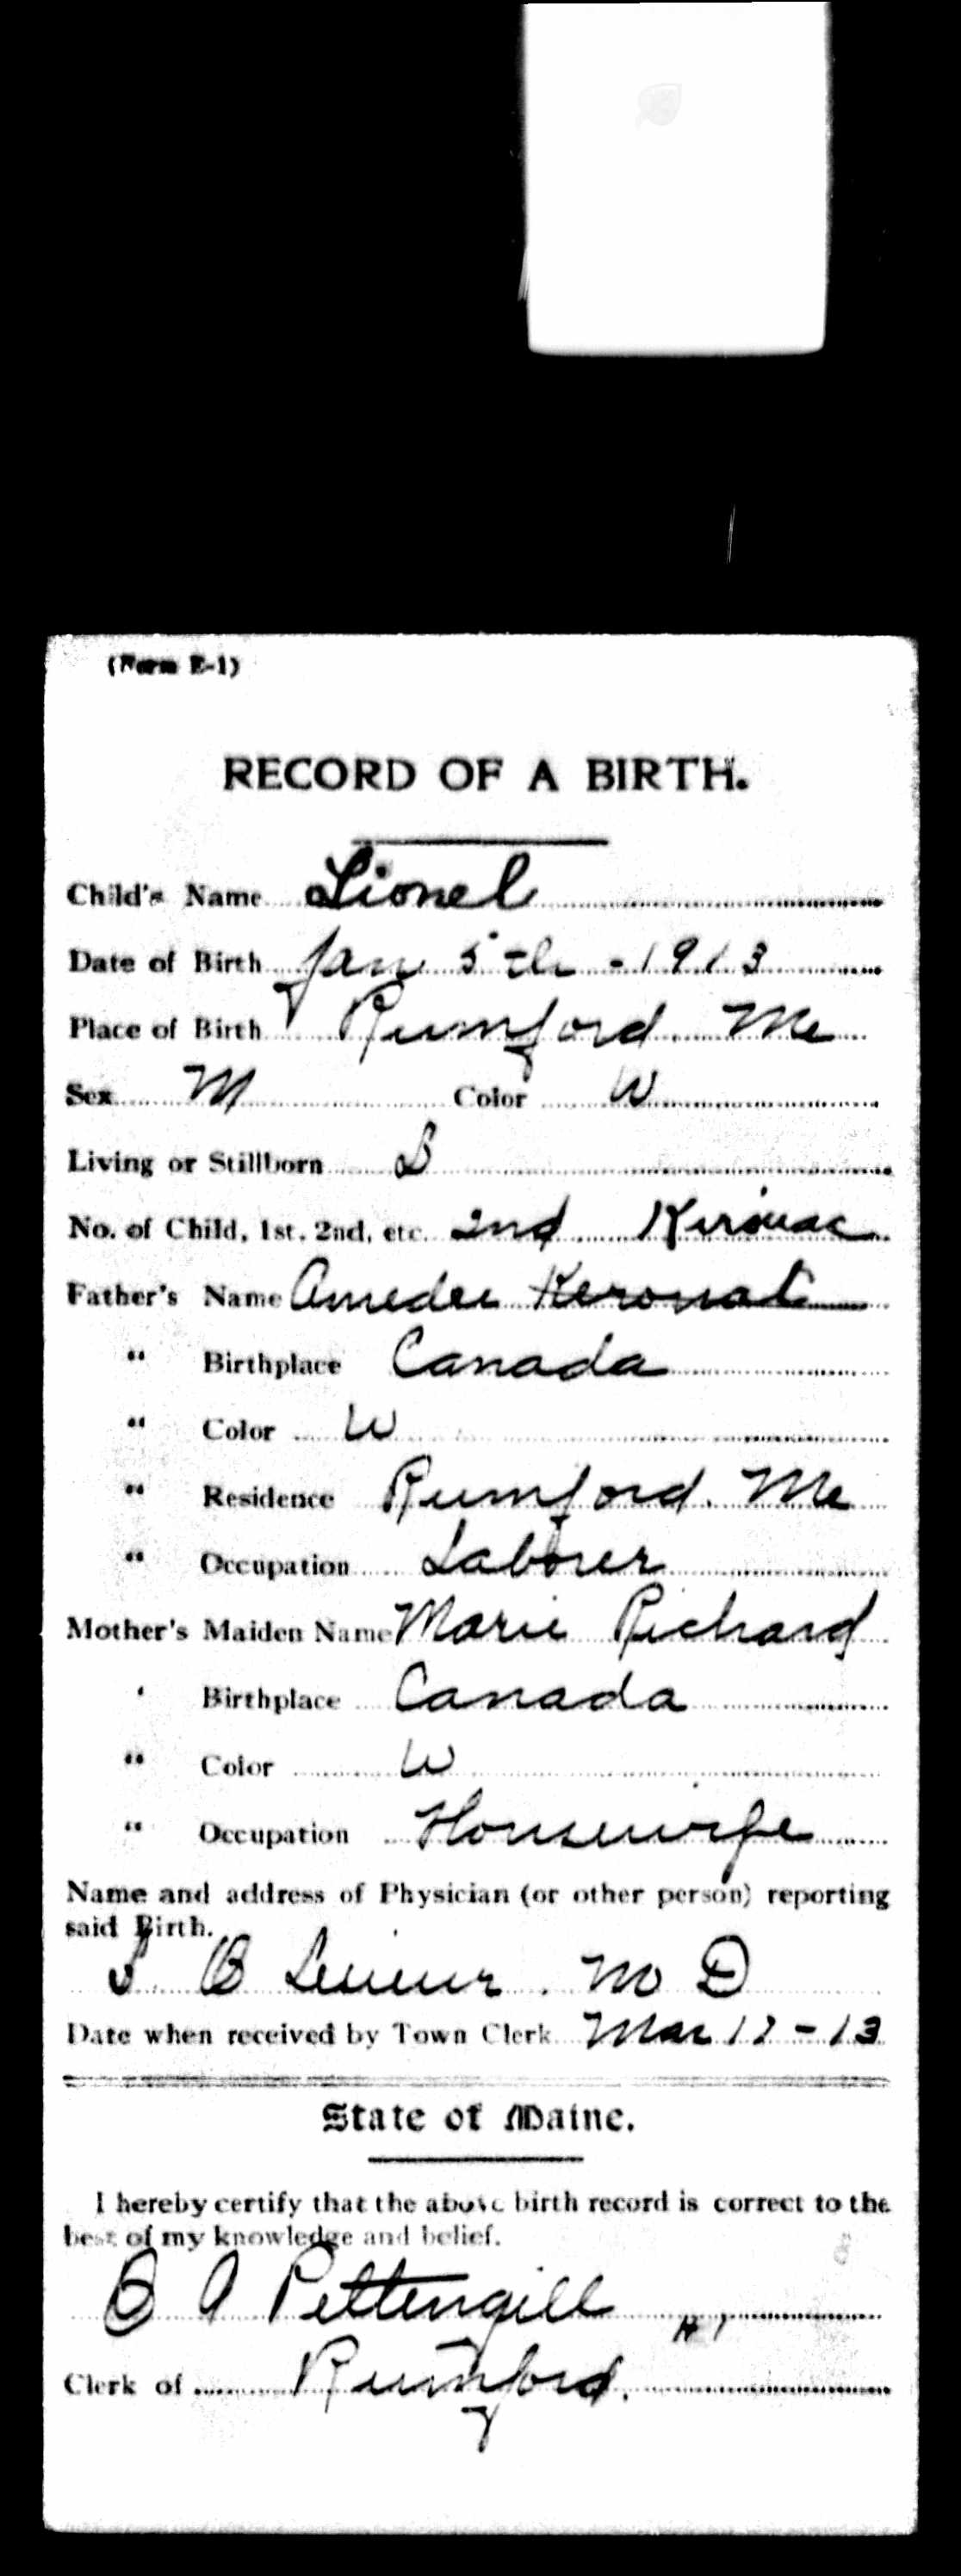 (Form E-1)
RECORD OF A BIRTH.
Child's Name Lionel
Date of Birth Jan 5th - 1913
Place of Birth Rumford Me
Sex M Color W
Living or Stillborn L
No. of Child, 1st, 2nd, etc. 2nd Kerouac
Father's Name Amedee Kerouac
" Birthplace Canada
" Color W
" Residence Rumford. Me
" Occupation Laborer
Mother's Maiden Name Marie Richard
" Birthplace Canada
" Color W
" Occupation Housewife
Name and address of Physician (or other person) reporting
said Birth.
B M D
Date when received by Town Clerk Mar - 13
State of Maine.
I hereby certify that the above birth record is correct to the
best of my knowledge and belief.
O A Pettengill
Clerk of Rumford.